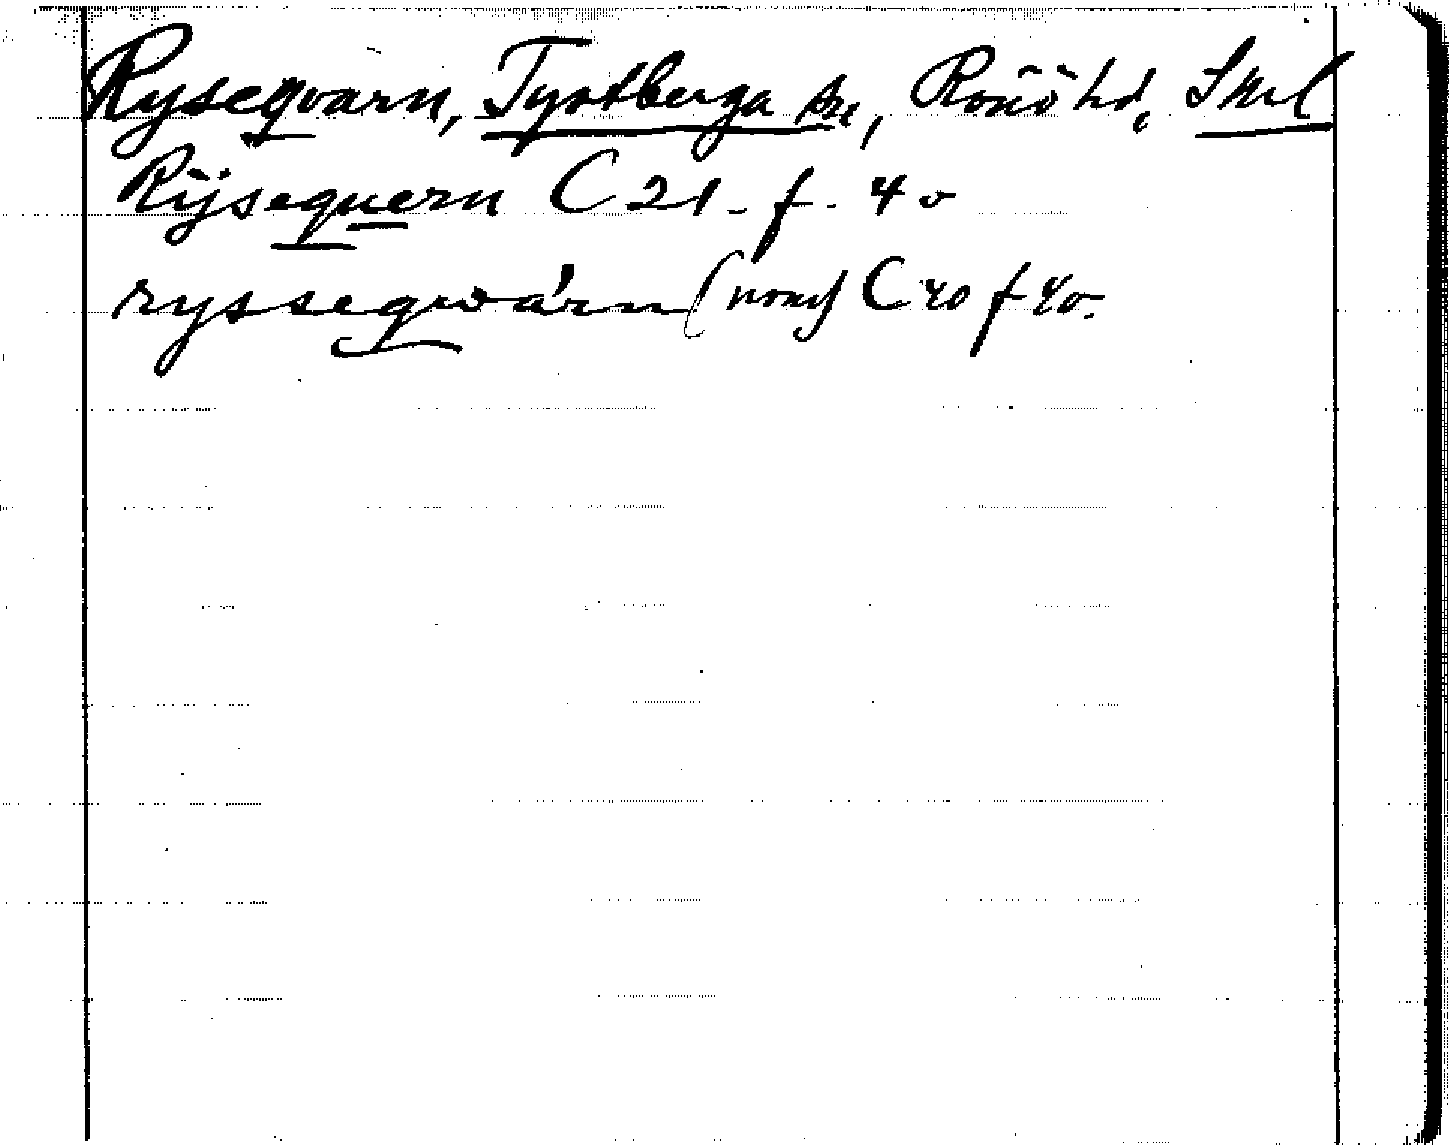 Ryseqvarn, Tystberga sn, Rönö hd, Skl
Rÿsequern C 21. f. 40
ryssegwärn (nom) C 20 f 40.